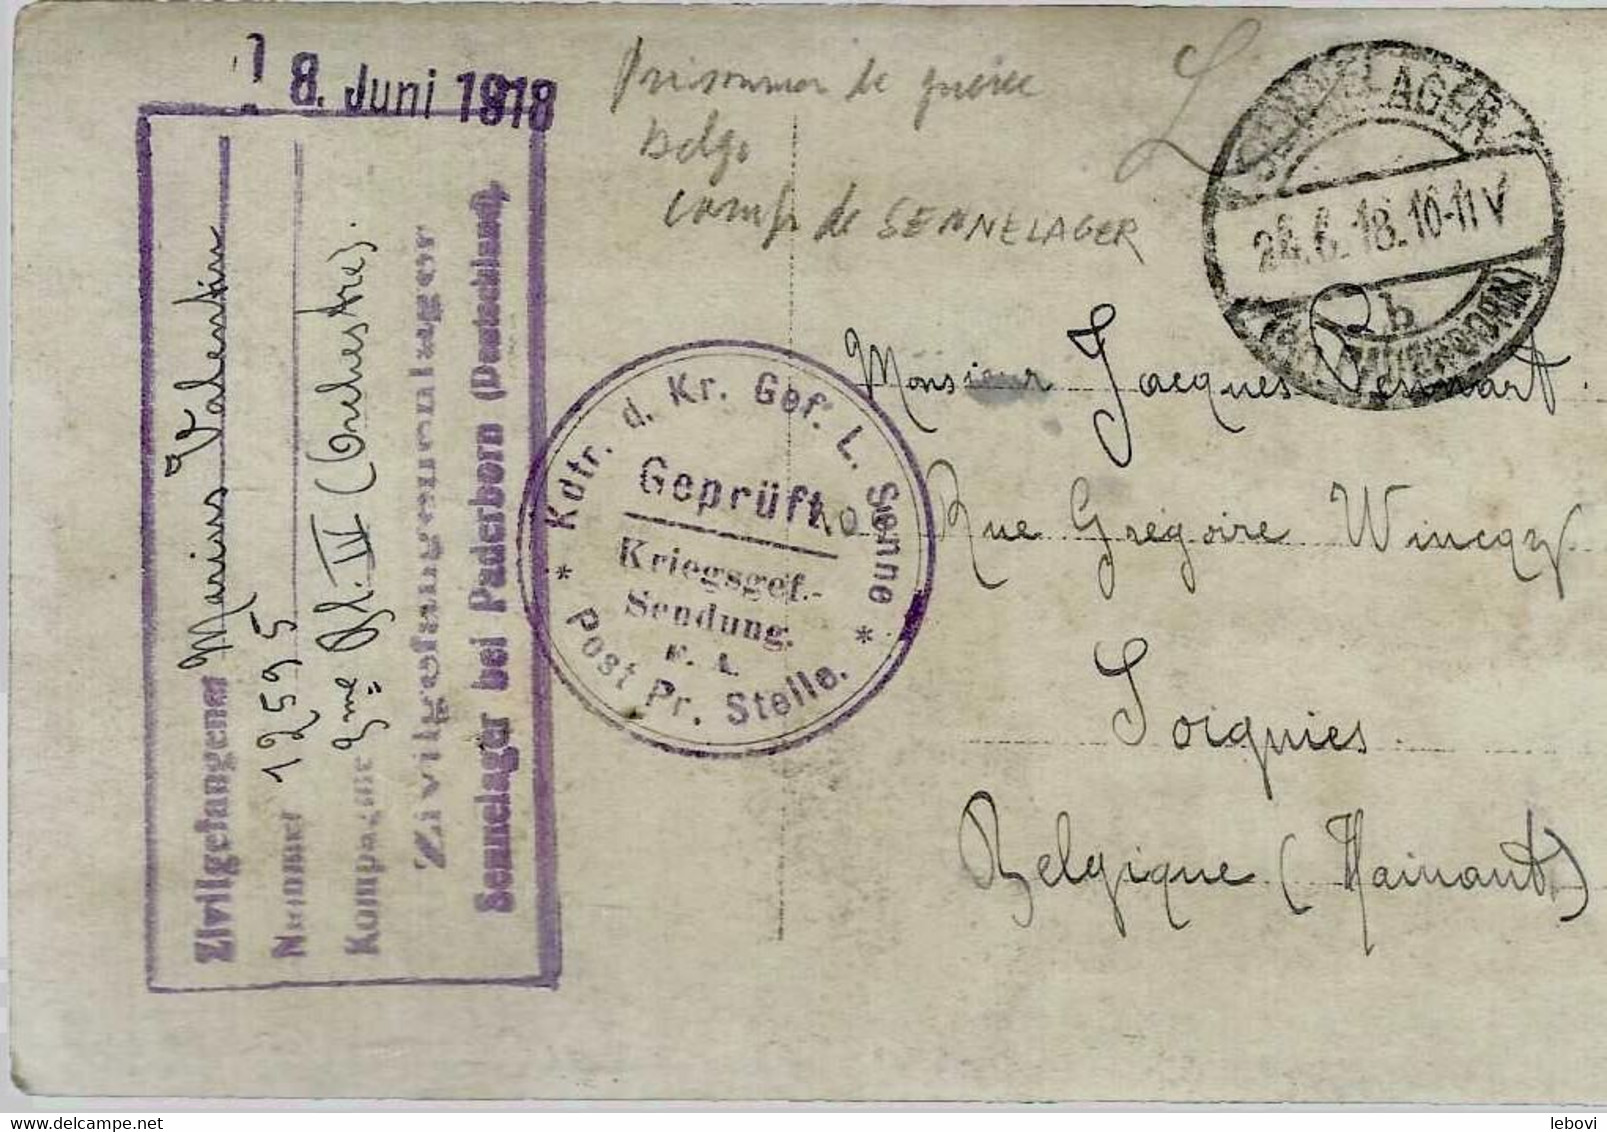 18. Juni 1918
Zivilgefangener Marius Valentin
Nummer 12595
Kompagnie 3me Bl. IV (Orchestre).
Zivilgefangenenlager
Sennelager bei Paderborn (Deutschland).
Prisonnier de guerre
belge
camp de SENNELAGER
SENNELAGER
24.6.18.10-11V
b
(PADERBORN)
* Kdtr. d. Kr. Gef. L. Senne *
Geprüft
Kriegsgef.-
Sendung.
F. A.
Post Pr. Stelle.
Monsieur Jacques
Rue Grégoire Wincqz
Soignies
Belgique (Hainaut)
lebovi